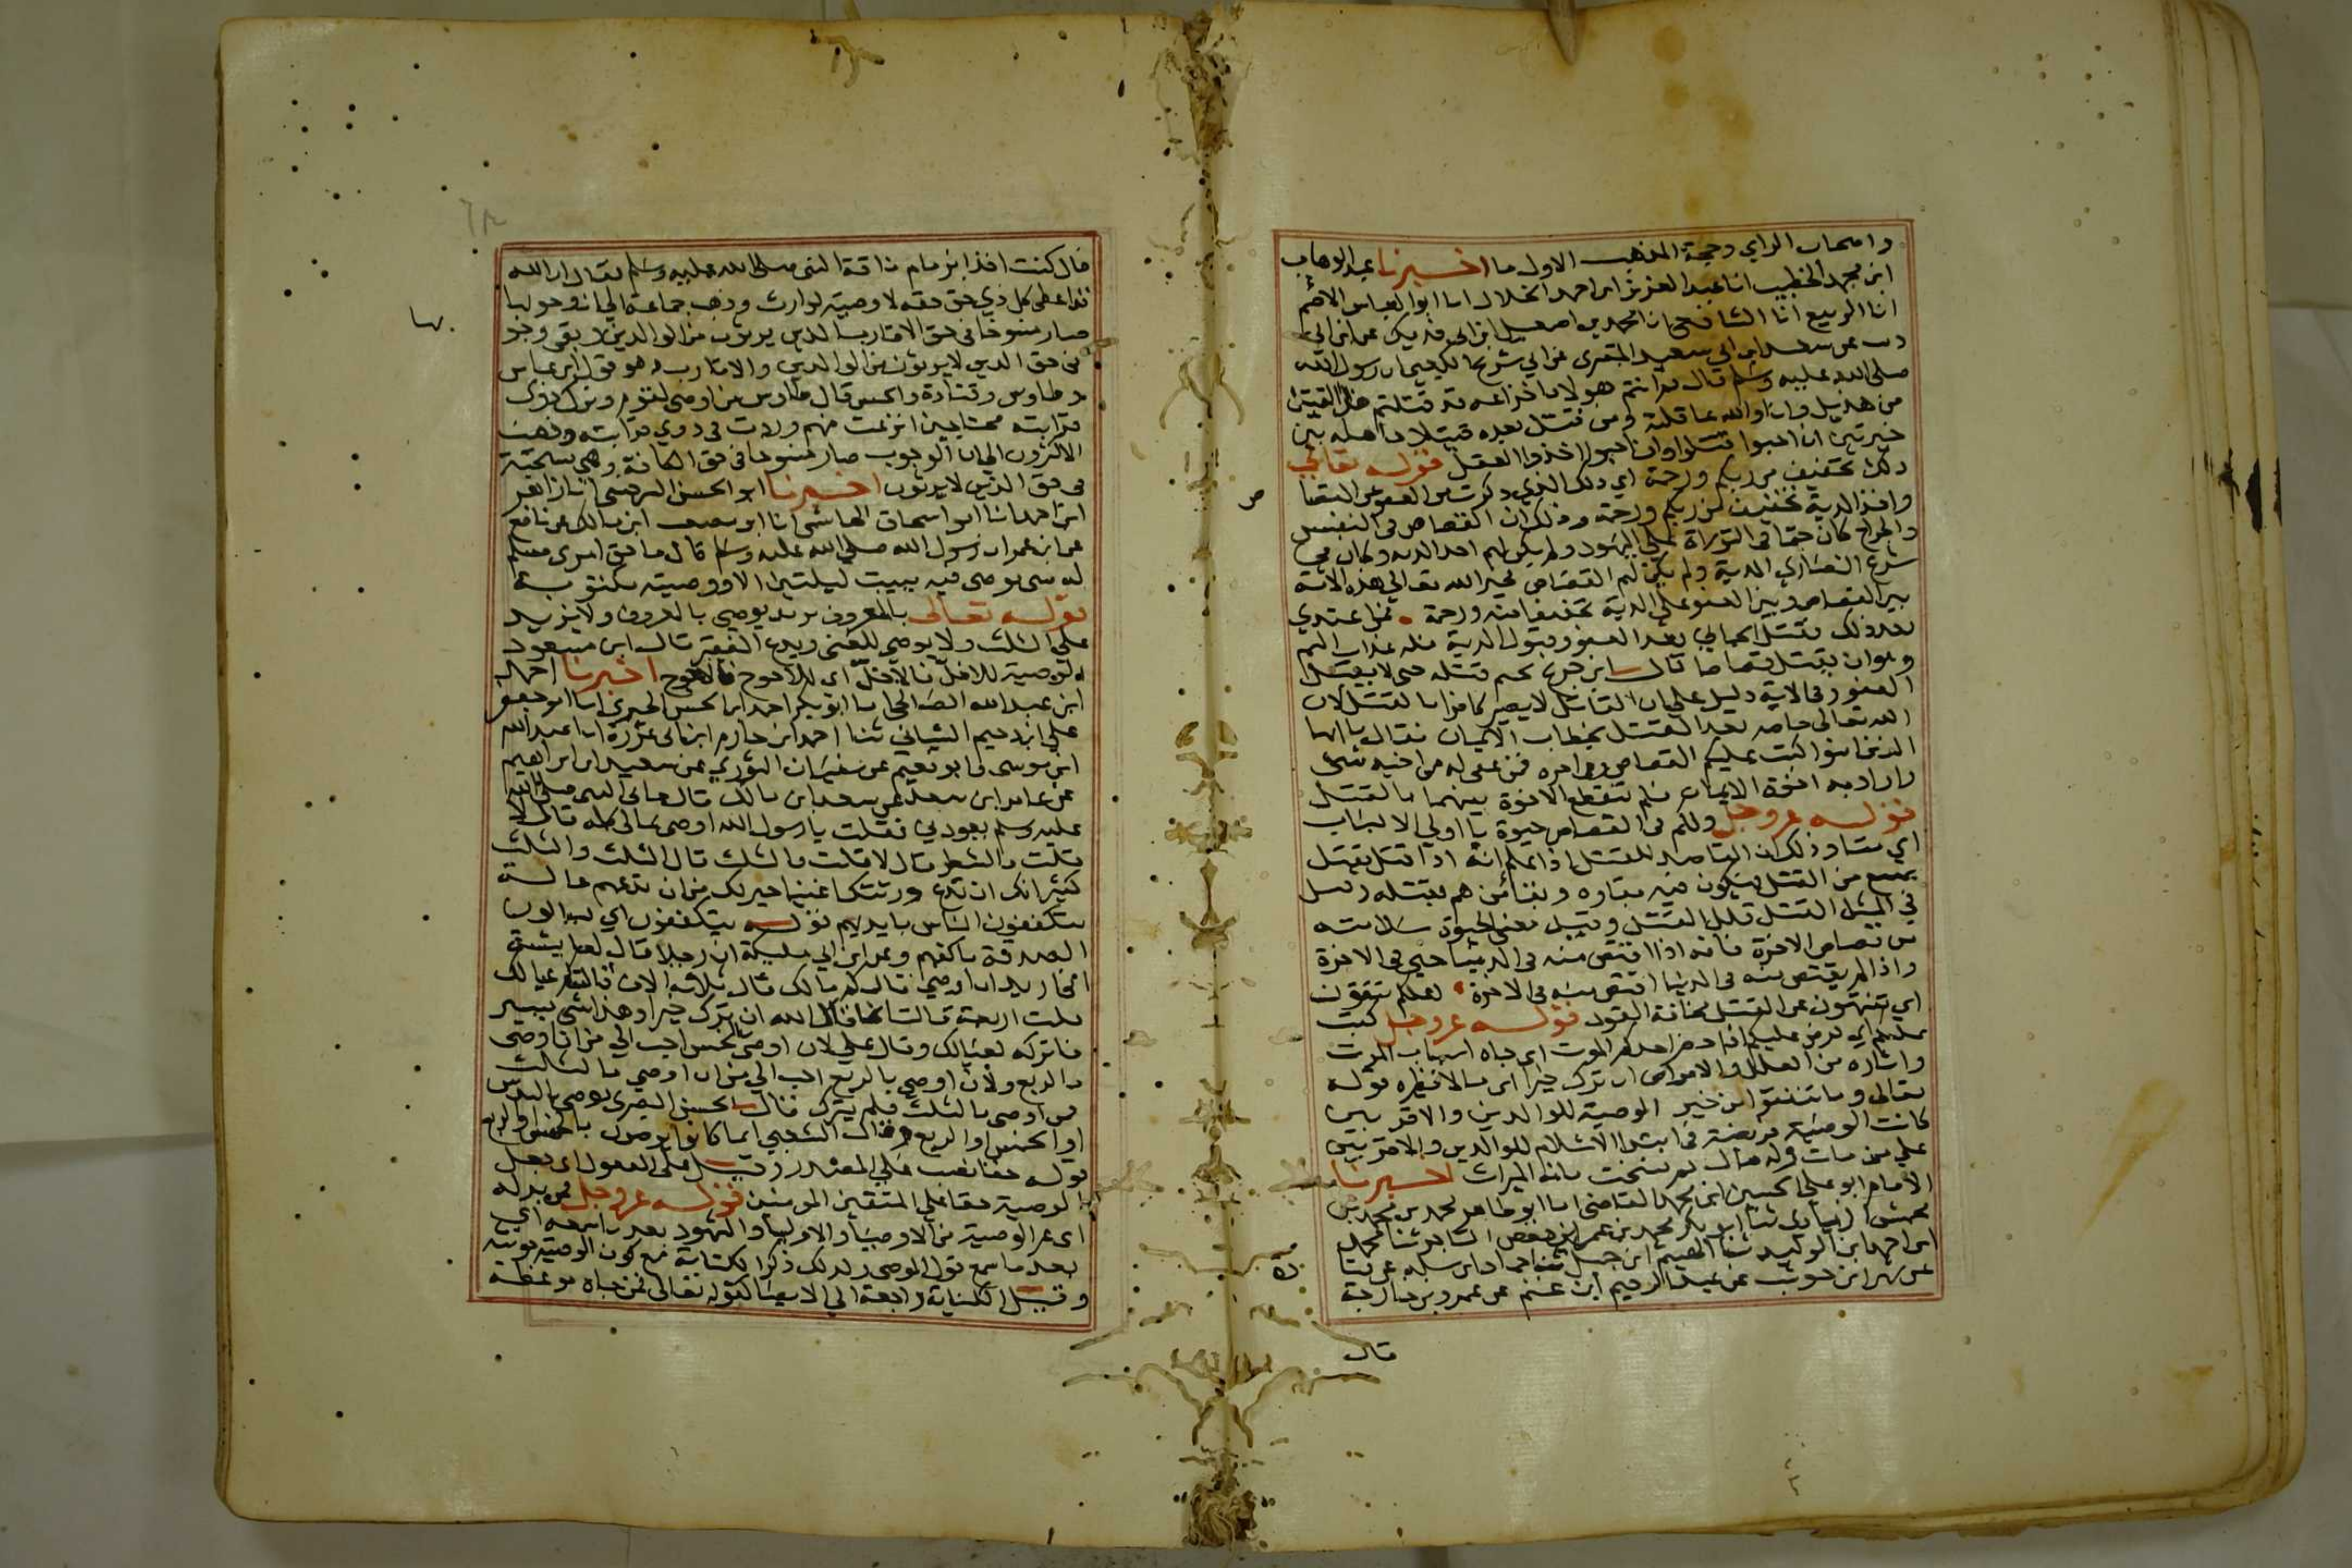 واصحاب الراي وحجة المذهب الاول ما اخبرنا عبد الوهاب
ابن محمد الخطيب انا عبد العزيز ابن احمد الخلال انا ابو العباس الاصم
انا الربيع انا الشافعي انا محمد بن اسمعيل ابن ابي فديك عن ابن ابي
ذيب عن سعيد ابن ابي سعيد المقبري عن ابي شريح الكعبي ان رسول الله
صلى الله عليه وسلم قال ثم انتم هولا يا خزاعه قد قتلتم هذا القتيل
من هذيل وانا والله عاقلة ومن قتل بعده قتيلا فاهله بين
خيرتين ان احبوا قتلوا وان احبوا اخذوا العقل قوله تعالى
ذلك تخفيف من ربكم ورحمة اي ذلك الذي ذكرت من العفو عن القصا
ص
واخذ الدية تخفيف من ربكم ورحمة وذلك ان القصاص في النفس
والجراح كان حتما في التوراة على اليهود ولم يكن لهم اخذ الدية وكان في
شرع النصارى الدية ولم يكن لهم القصاص فخير الله تعالى هذه الامة
بين القصاص وبين العفو على الدية تخفيفا منه ورحمة فمن اعتدى
بعد ذلك فقتل الجاني بعد العفو وقبول الدية فله عذاب اليم
وهو ان يقتل قصاصا قال ابن جريج يحتم قتله حتى لا يقبل
العفو وفي الاية دليل على ان القاتل لا يصير كافرا بالقتل لان
الله تعالى خاطبه بعد القتل بخطاب الايمان فقال يا ايها
الذين امنوا كتب عليكم القصاص وفي اخره فمن عفي له من اخيه شي
واراد به اخوة الايمان فلم تنقطع الاخوة بينهما بالقتل
قوله عز وجل ولكم في القصاص حيوة يا اولي الالباب
اي بقا وذلك ان القاصد للقتل اذا علم انه اذا قتل يقتل
يمتنع من القتل فيكون فيه بقاوه وبقا من هم بقتله وقيل
في المثل القتل قلل القتل وقيل معنى الحيوة سلامته
من قصاص الاخرة فانه اذا اقتص منه في الدنيا حيي في الاخرة
واذا لم يقتص منه في الدنيا اقتص منه في الاخرة لعلكم تتقون
اي تنتهون عن القتل مخافة القود قوله عز وجل كتب
عليكم اي فرض عليكم اذا حضر احدكم الموت اي جاه اسباب الموت
واشاره من العلل والامراض ان ترك خيرا اي مالا نظيره قوله
تعالى وما تنفقوا من خير الوصية للوالدين والاقربين
كانت الوصية فريضة في ابتدا الاسلام للوالدين والاقربين
على من مات وله مال ثم نسخت باية الميراث اخبرنا
الامام ابو علي الحسين ابن محمد القاضي انا ابو طاهر محمد بن محمد بن
محمش الزيادي ثنا ابو بكر محمد بن عمر ابن حفص التاجر ثنا محمد
ابن احمد ابن الوليد ثنا الهيثم ابن جميل ثنا حماد ابن سلمه عن قتادة
عن شهر ابن حوشب عن عبد الرحيم ابن غنم عن عمرو بن خارجة
قال
قال كنت اخذا بزمام ناقة النبي صلى الله عليه وسلم فقال ان الله
قد اعطى كل ذي حق حقه لا وصية لوارث وذهب جماعة الى ان وجوبها
بها
صار منسوخا في حق الاقارب الذين يرثون من الوالدين لا بقى وجو
في حق الذين لا يرثون من الوالدين والاقارب وهو قول ابن عباس
وطاوس وقتادة والحسن قال طاوس من اوصى لقوم وترك ذوي
قرابته محتاجين انتزعت منهم وردت في ذوي قرابته وذهب
الاكثرون الى ان الوجوب صار منسوخا في حق الكافة وهي مستحبة
في حق الذين لا يرثون اخبرنا ابو الحسن السرخسي انا زاهر
ابن احمد انا ابو اسحاق الهاشمي انا ابو مصعب ابن مالك عن نافع
عن ابن عمر ان رسول الله صلى الله عليه وسلم قال ما حق امرى مسلم
له شى يوصى فيه يبيت ليلتين الا ووصيته مكتوبة
قوله تعالى بالمعروف يريد يوصي بالمعروف ولا يزيد
على الثلث ولا يوصي للغني ويدع الفقير قال ابن مسعود
الوصية للاخل فالاخل اي للاحوج فالاحوج اخبرنا احمد
ابن عبد الله الصالحي انا ابو بكر احمد ابن الحسن الحيري انا ابو جعفر
علي ابن دحيم الشيباني ثنا احمد ابن حازم ابن ابي غرزة انا عبد الله
ابن موسى وابو نعيم عن سفيان الثوري عن سعيد ابن ابراهيم
عن عامر ابن سعد عن سعد ابن مالك قال جاني النبي صلى الله
عليه وسلم يعودني فقلت يا رسول الله اوصى بمالي كله قال لا
قلت فالشطر قال لا قلت فالثلث قال الثلث والثلث
كثير انك ان تدع ورثتك اغنيا خير لك من ان تدعهم عالة
يتكففون الناس بايديهم قوله يتكففون اي يسالون
الصدقة باكفهم وعن ابن ابي مليكة ان رجلا قال لعايشة
اني اريد ان اوصي قالت كم مالك قال ثلاثة الاف قالت كم عيالك
قلت اربعة قالت انما قال الله ان ترك خيرا وهذا شي يسير
فاتركه لعيالك وقال علي لان اوصي بالخمس احب الي من ان اوصي
بالربع ولان اوصي بالربع احب الي من ان اوصي بالثلث
من اوصى بالثلث فلم يترك قال الحسن البصري يوصي بالسدس
او الخمس او الربع وقال الشعبي انما كانوا يوصون بالخمس او الربع
قوله حقا نصب على المصدر وقيل على المفعول اي جعل
الوصية حقا على المتقين المومنين قوله عز وجل فمن بدله
اي غير الوصية من الاوصيا او الاوليا والشهود بعد ما سمعه اي
بعد ما سمع قول الموصي ولذلك ذكر الكناية مع كون الوصية مونثة
وقيل الكناية راجعة الى الايصا كقوله تعالى فمن جاه موعظة